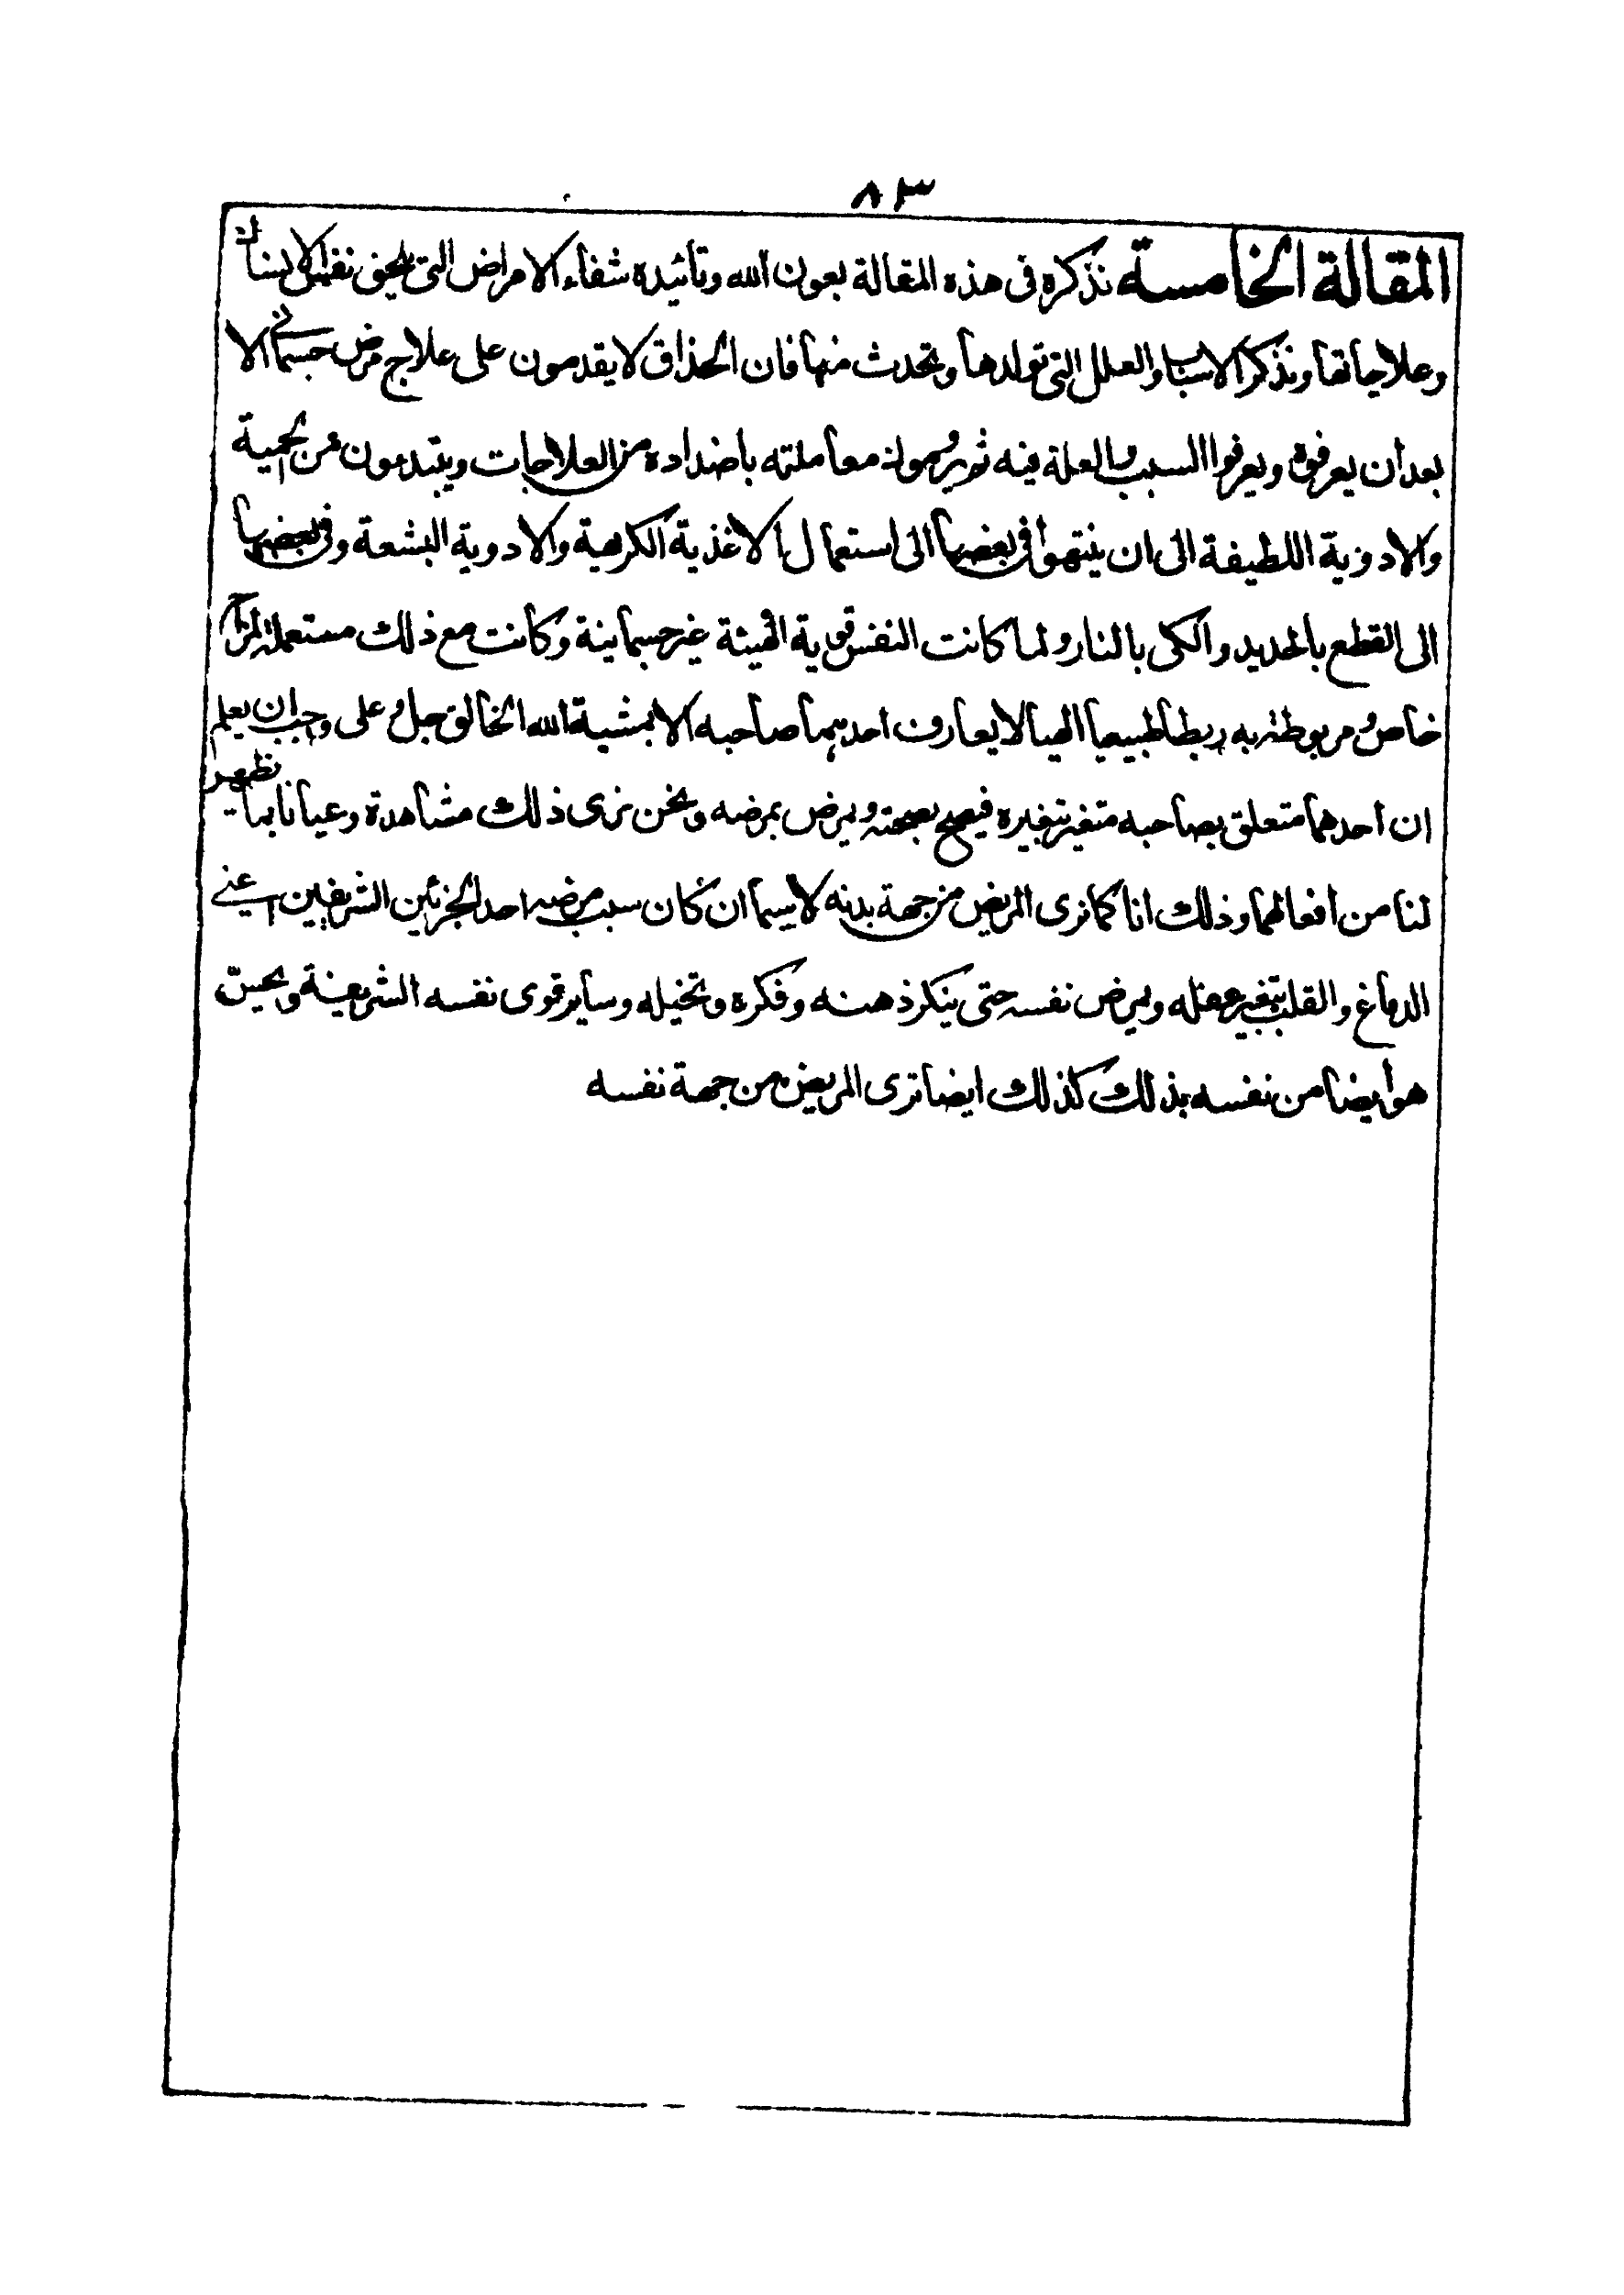 ٨٣
المقالة الخامسة نذكره فى هذه المقالة بعون الله وتأئيده شفاء الامراض التى تلحق نفس الانسان
وعلاجاتها ونذكر الاسباب والعلل التى تولدها وتحدث منها فان الحذاق لا يقدمون على علاج مرض جسمانى الا
بعد ان يعرفوه ويعرفوا السبب والعلة فيه ثم يرومون معاملته باضداده من العلاجات ويبتدءون من الحمية
والادوية اللطيفة الى ان ينتهوا فى بعضها الى استعمال الاغذية الكريهة والادوية البشعة وفى بعضها
الى القطع بالحديد والكى بالنار ولما كانت النفس قوية الهيئة غير جسمانية وكانت مع ذلك مستعملة لمزاج
خاص ومربوطة به ربطا طبيعيا الهيا لا يفارق احدهما صاحبه الا بمشية الله الخالق جل وعلى وجب ان يعلم
ان احدهما متعلق بصاحبه متغير بتغيره فيصح بصحته ويمرض بمرضه ونحن نرى ذلك مشاهدة وعيانا بما تظهر
لنا من افعالهما وذلك انا كما نرى المريض من جهة بدنه لا سيما ان كان سبب مرضه احد الجزئين الشريفين اعنى
الدماغ والقلب يتغير عقله ويمرض نفسه حتى ينكر ذهنه وفكره وتخيله وساير قوى نفسه الشريفة ويحس
هو أيضا من نفسه بذلك كذلك ايضا نرى المريض من جهة نفسه